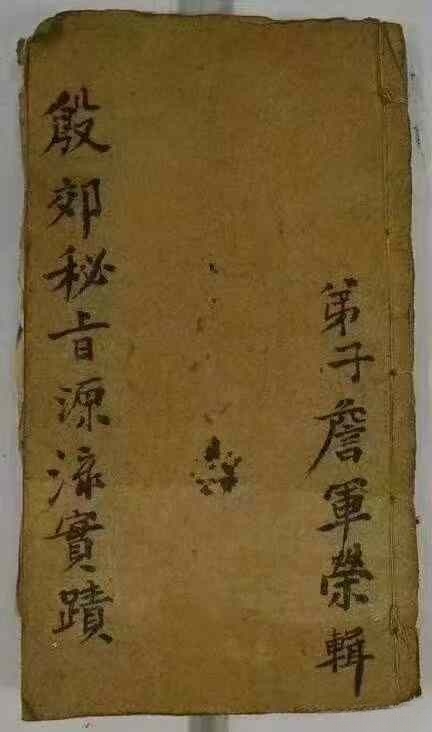 弟子詹軍榮輯
殷郊秘旨源滾實蹟